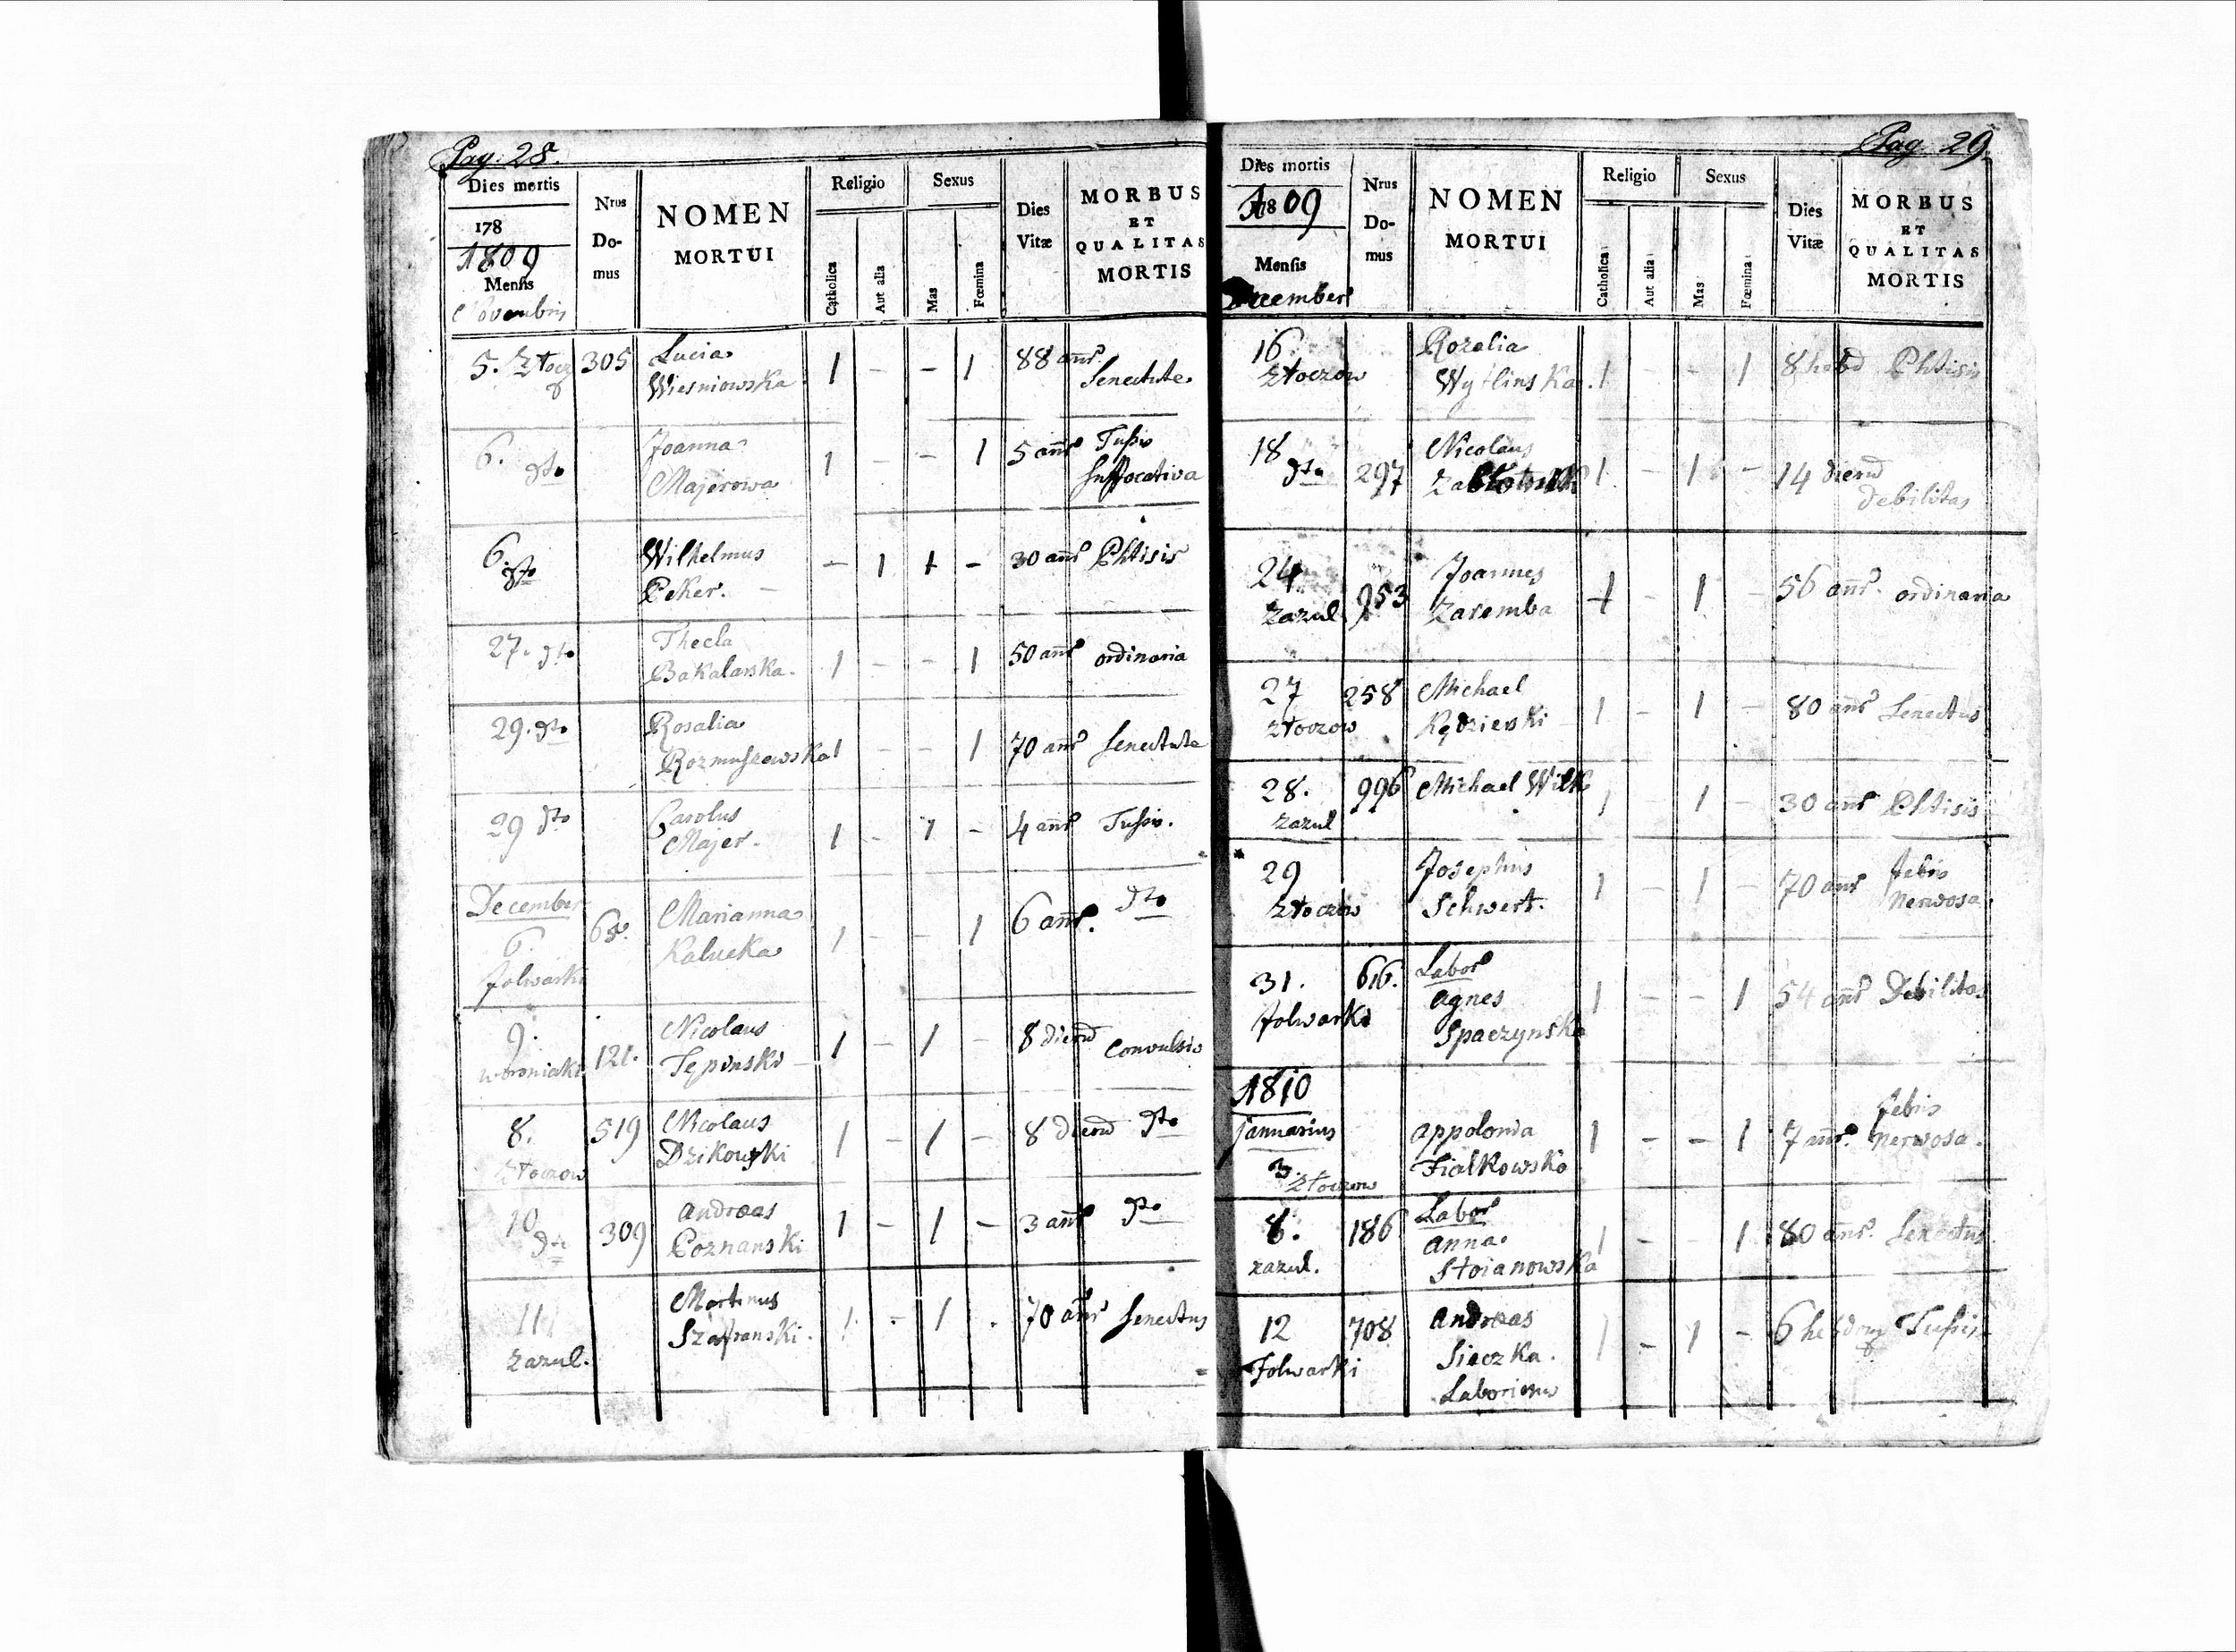 Pag. 28.
Dies mortis
178
1809
Mensis
Novembris
Nrus
Do-
mus
NOMEN
MORTUI
Religio
Catholica
Aut alia
Sexus
Mas
Fœmina
Dies
Vitæ
MORBUS
ET
QUALITAS
MORTIS
5. Złocz 305 Lucia 1 - - 1 88 annr
Wiesniowska Senectute
6. dto Joanna 1 - - 1 5 annr Tussis
Majerowa Suffocativa
6. dto Wilhelmus - 1 1 - 30 annr Phtisis
Peker. -
27. dto Thecla 1 - - 1 50 annr ordinaria
Bakalarska.
29. dto Rosalia 1 - - 1 70 annr Senectute
Rozmuszewska
29 dto Carolus 1 - 1 - 4 annr Tussis.
Majer.
December
6. 65. Marianna 1 - - 1 6 annr. dto
folwarki Kalucka
9. 121. Nicolaus 1 - 1 - 8 dierum Convulsio
woroniaki Tepinski
8. 519 Nicolaus 1 - 1 - 8 dierum dto
Złoczow Dzikowski
10 dto 309 Andreas 1 - 1 - 3 annr dto
Poznanski
11 Martinus 1 - 1 - 70 annr Senectus
zazul. Szafranski.
Pag. 29.
Dies mortis
1809
Mensis
December
Nrus
Do-
mus
NOMEN
MORTUI
Religio
Catholica
Aut alia
Sexus
Mas
Fœmina
Dies
Vitæ
MORBUS
ET
QUALITAS
MORTIS
16. Rozalia 1 - - 1 8 hebd Phtisis
Złoczow Wytlinska.
18 dto 297 Nicolaus 1 - 1 - 14 dierum
debilitas
24 953 Joannes 1 - 1 - 56 annr. ordinaria
Zazul Zaremba
27 258 Michael 1 - 1 - 80 annr Senectus
Złoczow Kędzierski
28. 996 Michael Wilk 1 - 1 - 30 annr Phtisis
zazul
29 Josephus 1 - 1 - 70 annr febris
Złoczow Schwert. nervosa.
31. 616. Labor
folwarki Agnes 1 - - 1 54 annr Debilitas
Spaczynska
1810
januarius Appolonia 1 - - 1 7 annr. febris
3. Złoczow Fialkowska nervosa.
8. 186 Labor
zazul. Anna 1 - - 1 80 annr. Senectus
Stoianowska
12 708 Andreas 1 - 1 - 6 hebdom Tussis
Folwarki Sieczka.